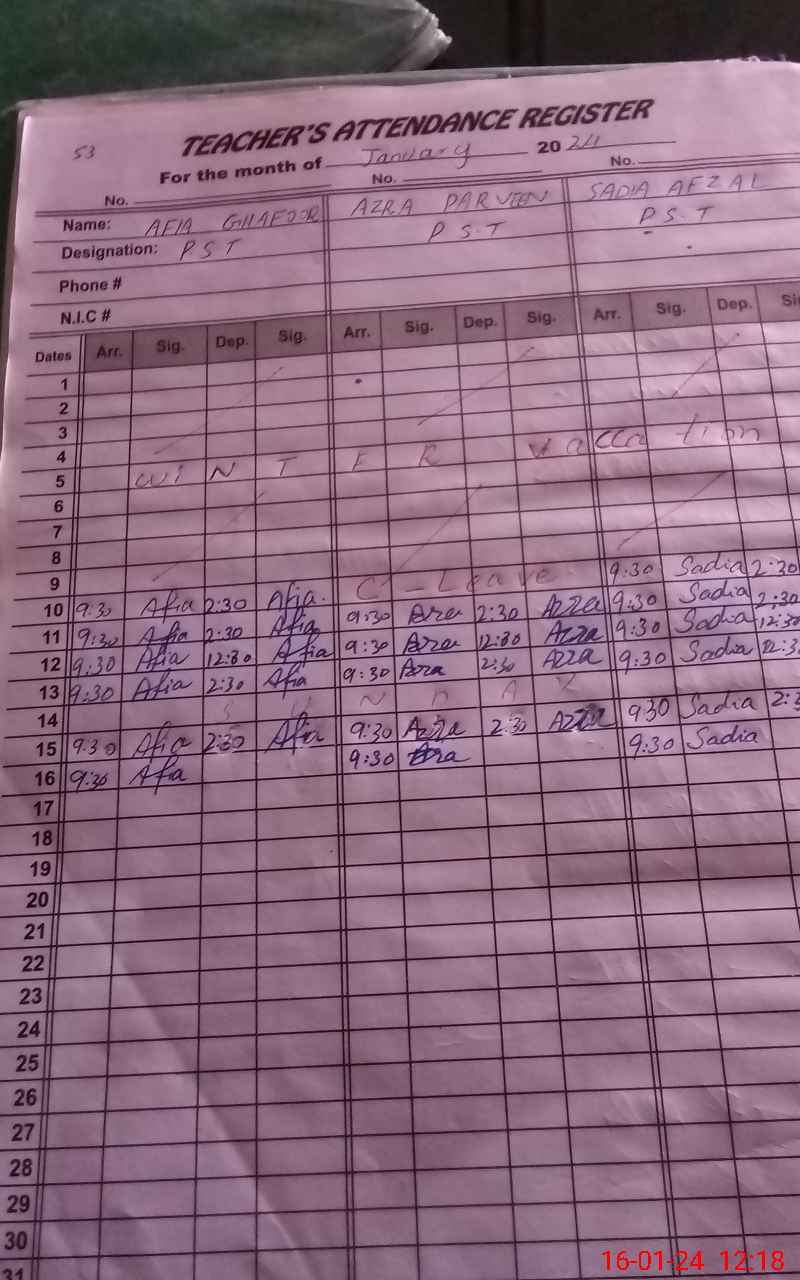 53
TEACHER'S ATTENDANCE REGISTER
For the month of January 2024
No. No. No.
Name: AFIA GHAFOOR AZRA PARVEEN SADIA AFZAL
Designation: P S T P S.T P S.T
Phone #
N.I.C #
Dates Arr. Sig. Dep. Sig. Arr. Sig. Dep. Sig. Arr. Sig. Dep.
1
2
3
4
5 WINTER vaccation
6
7
8
9
10 9:30 Afia 2:30 Afia. C-Leave 9:30 Sadia 2:30
11 9:30 Afia 2:30 Afia 9:30 Azra 2:30 Azra 9:30 Sadia 2:30
12 9:30 Afia 12:30 Afia 9:30 Azra 12:30 Azra 9:30 Sadia 12:30
13 9:30 Afia 2:30 Afia 9:30 Azra 2:30 Azra 9:30 Sadia
14 SUNDAY
15 9:30 Afia 2:30 Afia 9:30 Azra 2:30 Azra 930 Sadia
16 9:30 Afia 9:30 Azra 9:30 Sadia
17
18
19
20
21
22
23
24
25
26
27
28
29
30
31
16-01-24 12:18